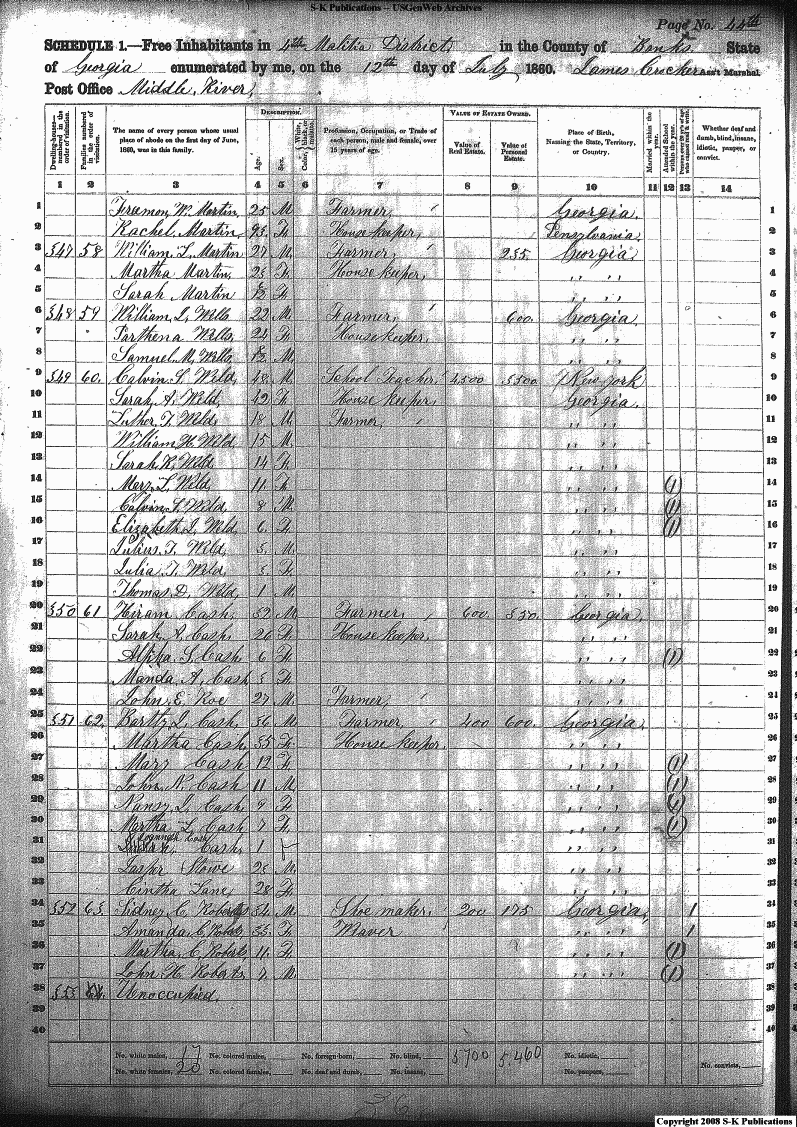 S-K Publications – USGenWeb Archives
Page No. 44th
SCHEDULE 1.—Free Inhabitants in 4th Malitia District, in the County of Banks State
of Georgia enumerated by me, on the 12th day of July 1860. James Crocker Ass't Marshal
Post Office Middle River,
DESCRIPTION. VALUE OF ESTATE OWNED.
Dwelling-houses—numbered in the order of visitation. Families numbered in the order of visitation. The name of every person whose usual place of abode on the first day of June, 1860, was in this family. Age. Sex. Color, White, black, or mulatto. Profession, Occupation, or Trade of each person, male and female, over 15 years of age. Value of Real Estate. Value of Personal Estate. Place of Birth, Naming the State, Territory, or Country. Married within the year. Attended School within the year. Persons over 20 y'rs of age who cannot read & write. Whether deaf and dumb, blind, insane, idiotic, pauper, or convict.
1 2 3 4 5 6 7 8 9 10 11 12 13 14
1 Freemon W. Martin, 25 M Farmer, Georgia, 1
2 Rachel Martin, F House keeper, Pensylvania 2
3 547 58 William L. Martin 27 M Farmer, 235. Georgia 3
4 Martha Martin, F House keeper, " " 4
5 Sarah Martin F " " 5
6 548 59 William Wells 22 M Farmer, 600. Georgia 6
7 Parthena Wells, 24 F House keeper, " " 7
8 Samuel M. Wells M " " 8
9 549 60. Calvin S. Weld, 48 M School Teacher, 4500 New york 9
10 Sarah A. Weld, 42 F House keeper, Georgia 10
11 Luther T. Weld, 18 M Farmer, " " 11
12 William H. Weld 15 M " " 12
13 Sarah R. Weld 14 F " " 13
14 L. Weld 11 F " " (1) 14
15 Calvin S. Weld, 8 M " " (1) 15
16 Elizabeth Weld, 6 F " " (1) 16
17 T. Weld, M " " 17
18 Julia T. Weld F " " 18
19 Thomas D. Weld, 1 M " " 19
20 550 61 Hiram Cash, M Farmer, 600. Georgia 20
21 Sarah A. Cash, 26 F House keeper, " " 21
22 S. Cash 6 F " " (1) 22
23 Manda A. Cash F " " 23
24 John E. Roe 27 M Farmer, " " 24
25 551 62. Cash, 36 M Farmer, 400 600. Georgia 25
26 Martha Cash, 35 F House keeper. " " 26
27 Mary Cash 12 F " " (1) 27
28 John N. Cash 11 M " " (1) 28
29 Nansy Cash 9 F " " (1) 29
30 Martha L. Cash 7 F " " (1) 30
31 Cash 1 " " 31
32 Jasper Stowe M " " 32
33 Cintha Lane, 28 F " " 33
34 552 63. Sidney C. Roberts M Shoe maker. 200 175 Georgia, 1 34
35 Amanda C. Roberts F Waver " " 1 35
36 Martha C. Roberts, 11 F " " (1) 36
37 John H. Roberts M " " (1) 37
38 553 Unoccupied. 38
39 39
40 40
No. white males, 17 No. colored males, No. foreign-born, No. blind, 5700 5,460 No. idiotic,
No. white females, 20 No. colored females, No. deaf and dumb, No. insane, No. paupers, No. convicts,
36
Copyright 2008 S-K Publications